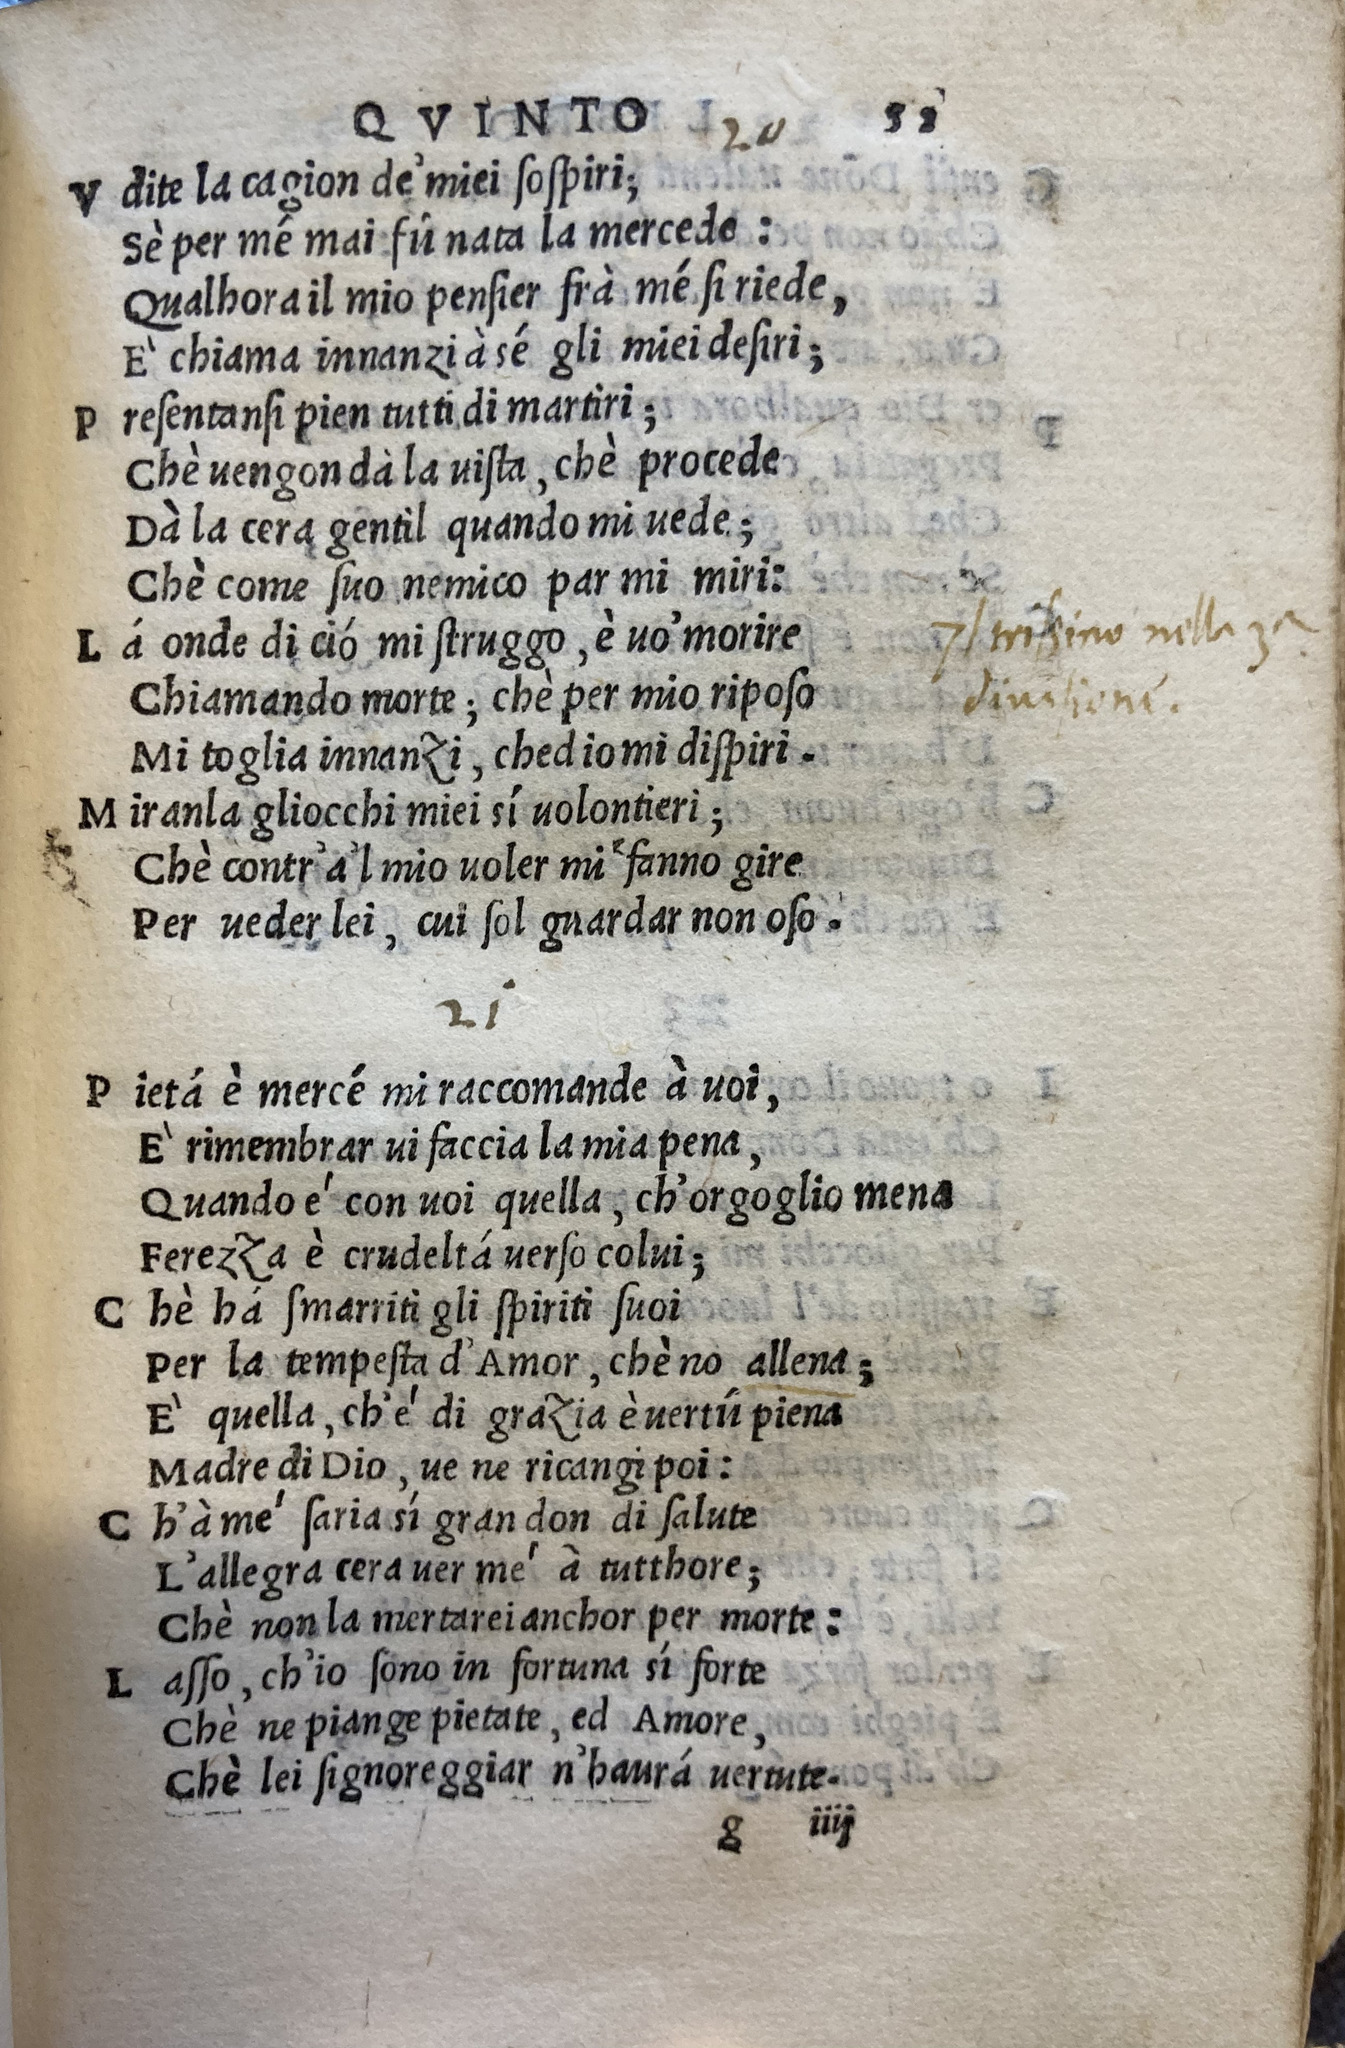 QVINTO 52
20
V dite la cagion de' miei soſpiri;
Sè per mé mai fú nata la mercede :
Qualhora il mio penſier frà mé ſi riede,
E' chiama innanzi à sé gli miei deſiri;
P reſentanſi pien tutti di martiri;
Chè uengon dà la uiſta, chè procede
Dà la cera gentil quando mi uede;
Chè come ſuo nemico par mi miri:
L á onde di ció mi ſtruggo, è uo' morire
Chiamando morte; chè per mio ripoſo
Mi toglia innanzi, ched io mi diſpiri.
M iranla gliocchi miei sí uolontieri;
Chè contr'a'l mio uoler mi fanno gire
Per ueder lei, cui ſol guardar non oſo.
trissino nella 3a
divisione.
21
P ietá è mercé mi raccomande à uoi,
E' rimembrar ui faccia la mia pena,
Quando e' con uoi quella, ch'orgoglio mena
Ferezza è crudeltá uerſo colui;
C hè há ſmarriti gli ſpiriti ſuoi
Per la tempeſta d'Amor, chè no allena;
E' quella, ch'e' di grazia è uertú piena
Madre di Dio, ue ne ricangi poi:
C h'à me' ſaria sí gran don di ſalute
L'allegra cera uer me' à tutthore;
Chè non la mertarei anchor per morte:
L aſſo, ch'io ſono in fortuna sí forte
Chè ne piange pietate, ed Amore,
Chè lei ſignoreggiar n'haurá uertute.
g iiij